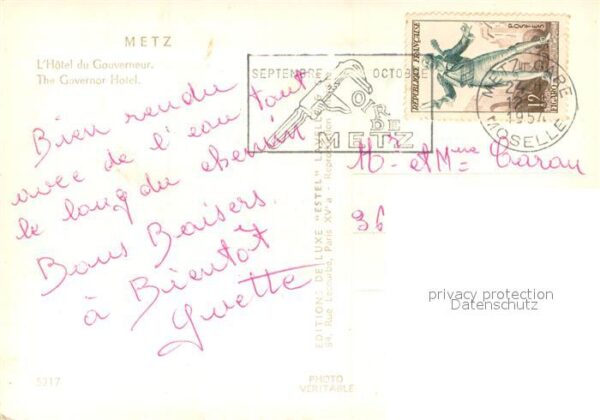 METZ
L'Hôtel du Gouverneur.
The Governor Hotel.
Bien rendu
avec de l'eau tout
le long du chemin
Bons Baisers
à Bientôt
Yvette
5217
EDITIONS DE LUXE "ESTEL"
Rue Lecourbe, Paris XVe
PHOTO
VÉRITABLE
SEPTEMBRE OCTOBRE
FOIRE
DE
METZ
REPUBLIQUE FRANÇAISE
POSTES
FIGARO
12F
METZ-GARE
1957
MOSELLE
Mr et Mme
36
privacy protection
Datenschutz